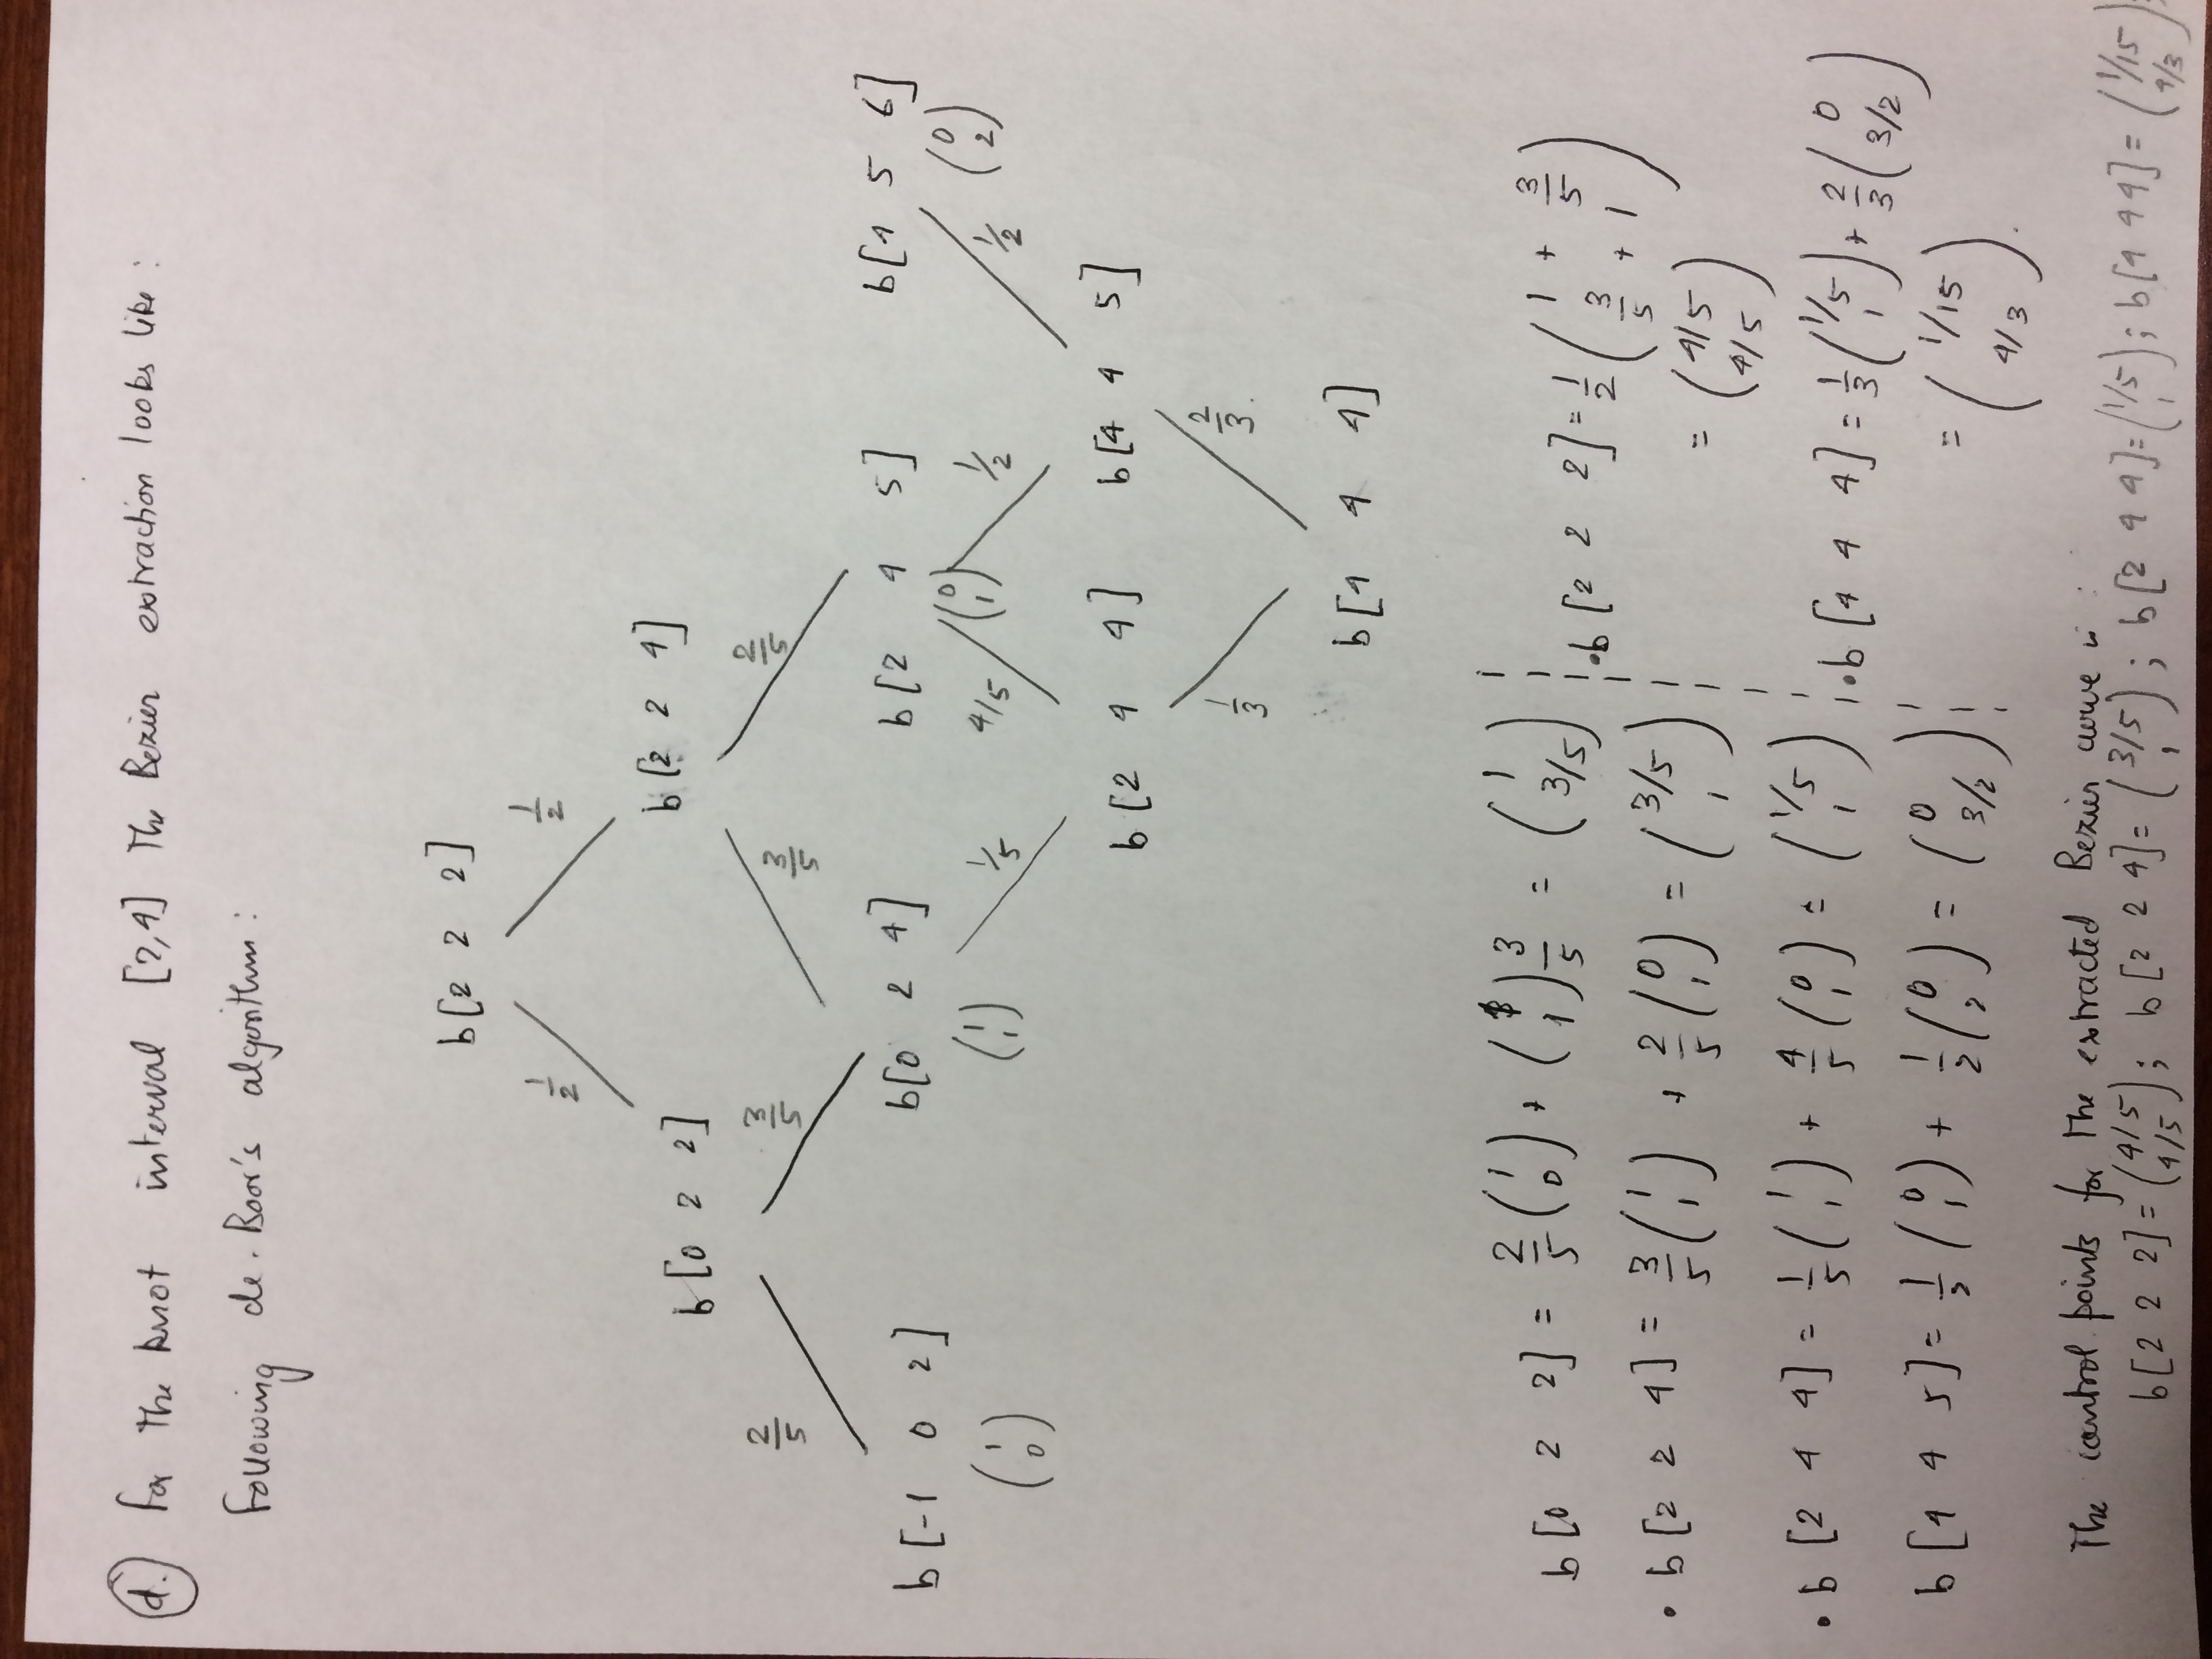 d. For the knot interval [2,4] The Bezier extraction looks like :
Following de. Boor's algorithm :
b[2 2 2]
1/2 1/2
b[0 2 2] b[2 2 4]
2/5 3/5 3/5 2/5
b[-1 0 2] b[0 2 4] b[2 4 5] b[4 5 6]
(1 0) (1 1) 1/5 4/5 (0 1) 1/2 1/2 (0 2)
b[2 4 4] b[4 4 5]
1/3 2/3.
b[4 4 4]
b[0 2 2] = 2/5 (1 0) + (1 1) 3/5 = (1 3/5)
• b[2 2 4] = 3/5 (1 1) + 2/5 (0 1) = (3/5 1)
• b[2 4 4] = 1/5 (1 1) + 4/5 (0 1) = (1/5 1)
b[4 4 5] = 1/2 (0 1) + 1/2 (0 2) = (0 3/2)
• b[2 2 2] = 1/2 (1 + 3/5 3/5 + 1)
= (4/5 4/5)
• b[4 4 4] = 1/3 (1/5 1) + 2/3 (0 3/2)
= (1/15 4/3).
The control points for The extracted Bezier curve is :
b[2 2 2] = (4/5 4/5) ; b[2 2 4] = (3/5 1) ; b[2 4 4] = (1/5 1) ; b[4 4 4] = (1/15 4/3)